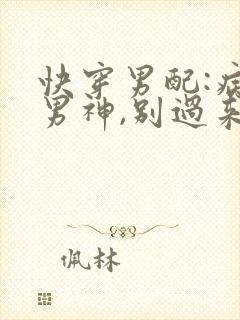 快穿男配:病
男神,别過来
佩林